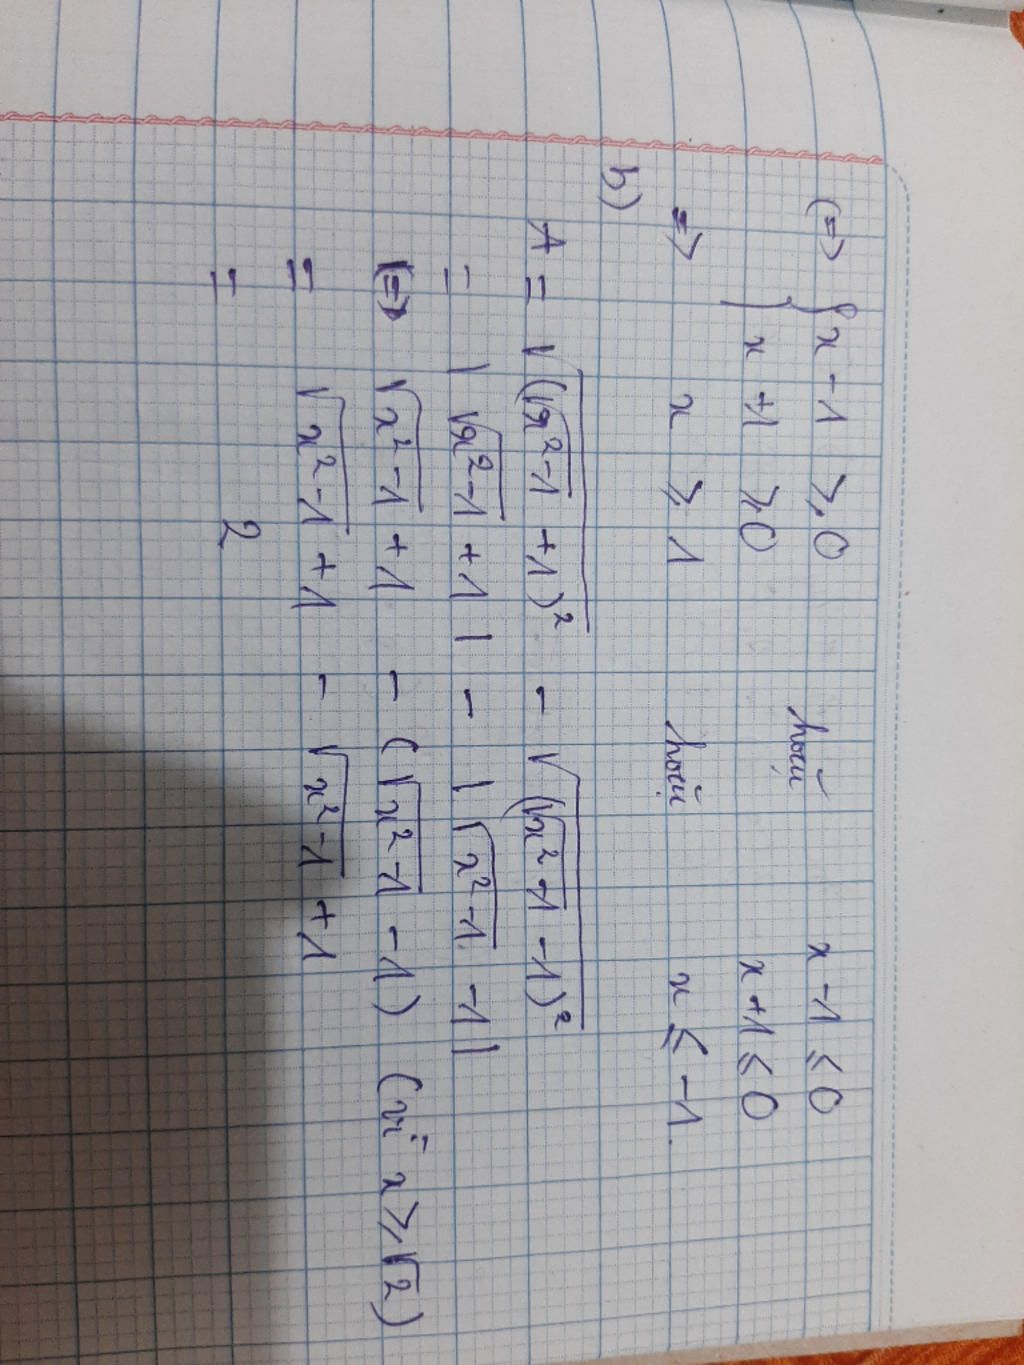 (=) { x - 1 ⩾ 0 hoặc x - 1 ≤ 0
x + 1 ⩾ 0 x + 1 ≤ 0
=> x ⩾ 1 hoặc x ≤ -1.
b)
A = √(√x²-1 + 1)² - √(√x²-1 - 1)²
= | √x²-1 + 1 | - | √x²-1 - 1 |
(=) √x²-1 + 1 - (√x²-1 - 1) (vì x ⩾ √2)
= √x²-1 + 1 - √x²-1 + 1
= 2